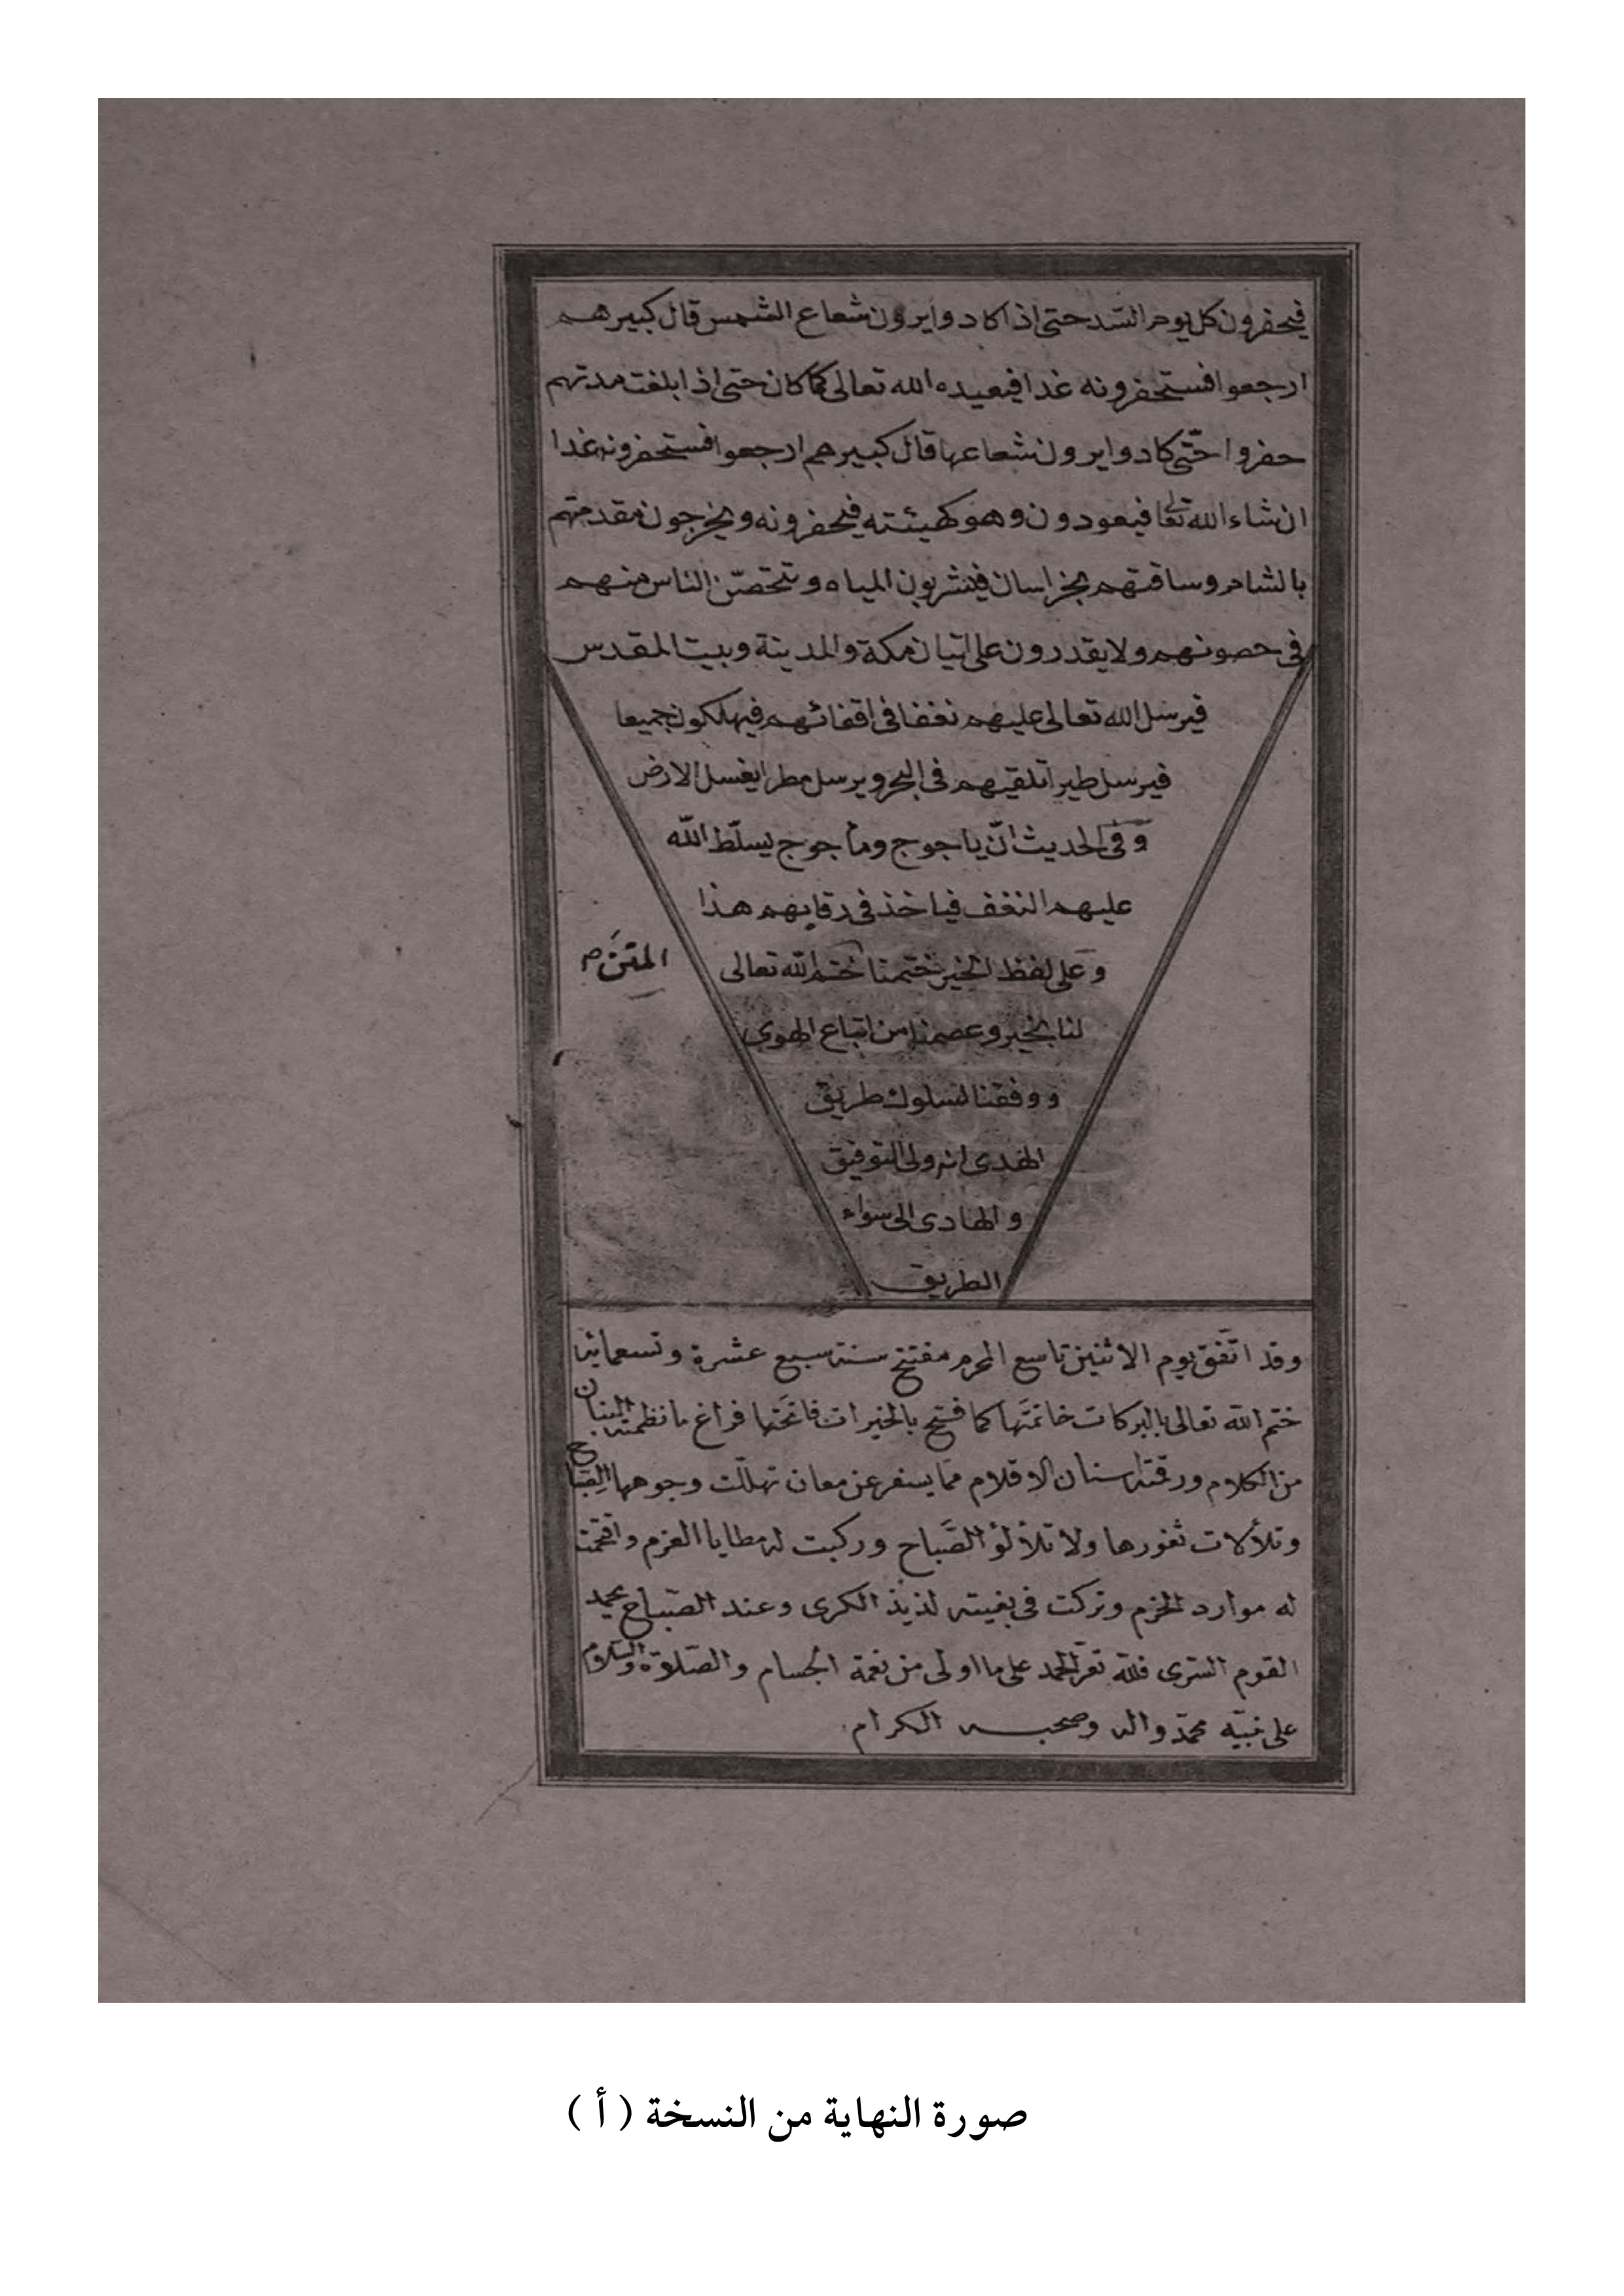 فيحفرون كل يوم السّد حتى اذا كادوا يرون شعاع الشمس قال كبيرهم
ارجعوا فستحفرونه غدا فيعيده الله تعالى كما كان حتى اذا بلغت مدتهم
حفروا حتّى كادوا يرون شعاعها قال كبيرهم ارجعوا فستحفرونه غدا
ان شاء الله تعا فيعودون وهو كهيئته فيحفرونه ويخرجون مقدمتهم
بالشام وساقتهم بخراسان فيشربون المياه وتتحصّن الناس منهم
في حصونهم ولا يقدرون على اتيان مكة والمدينة وبيت المقدس
فيرسل الله تعالى عليهم نغفا في اقفائهم فيهلكون جميعا
فيرسل طيرا تلقيهم في البحر ويرسل مطرا يغسل الارض
وفي الحديث انّ ياجوج وماجوج يسلّط الله
عليهم النغف فياخذ في رقابهم هذا
وعلى لفظ الخير ختمنا ختم الله تعالى
المتن م
لنا بالخير وعصمنا من اتباع الهوى
ووفقنا لسلوك طريق
الهدى انه ولى التوفيق
والهادى الى سواء
الطريق
وقد اتّفق يوم الاثنين تاسع المحرم مفتتح سنة سبع عشرة وتسعمائة
ختم الله تعالى بالبركات خاتمتها كما فتح بالخيرات فاتحتها فراغ ما نظمته البنان
من الكلام ورقمته اسنان الاقلام ممّا يسفر عن معان تهلّلت وجوهها الصّباح
وتلألات ثغورها ولا تلألؤ الصّباح وركبت له مطايا العزم واقتحمت
له موارد الحزم وتركت في بغيته لذيذ الكرى وعند الصّباح يحمد
القوم السّرى فلله تعا الحمد على ما اولى من نعمه الجسام والصّلاة والسّلام
على نبيّه محمّد واله وصحبه الكرام
صورة النهاية من النسخة ( أ )